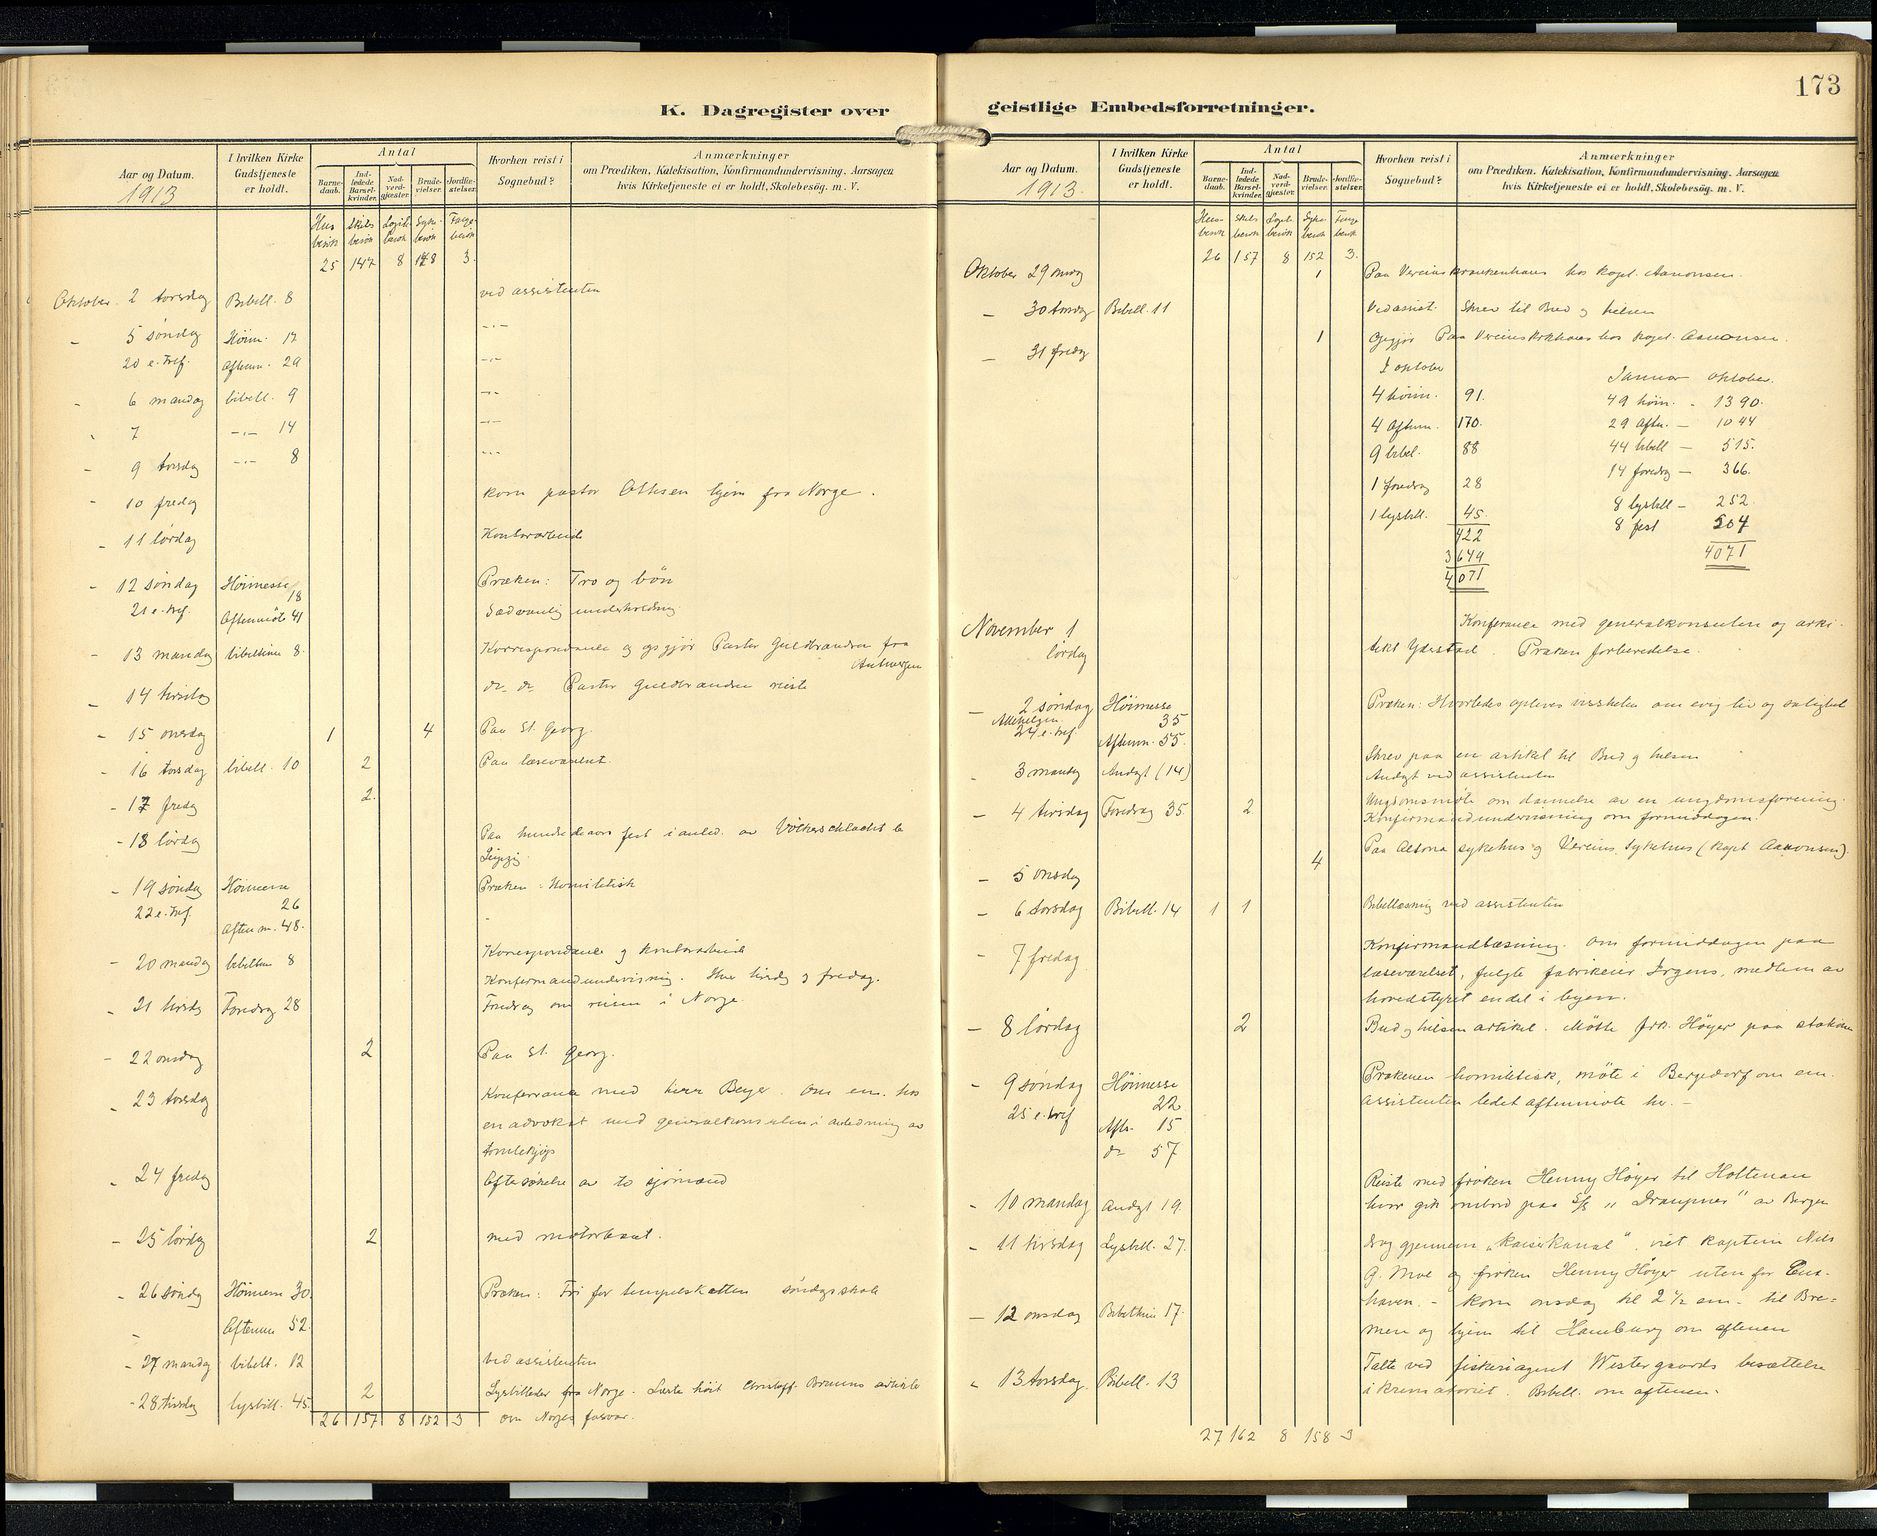 K. Dagregister over
Aar og Datum.
1913
I hvilken Kirke Gudstjeneste er holdt.
Antal
Barne-daab.
Ind-ledede Barsel-kvinder.
Nad-verd-gjæster.
Brude-vielser.
Jordfæ-stelser.
Hvorhen reist i Sognebud?
Anmærkninger
om Prædiken, Katekisation, Konfirmandundervisning. Aarsagen
hvis Kirketjeneste ei er holdt, Skolebesøg. m. V.
Hus besøk Skibs besøk Logi besøk Syke besøk Fange besøk
25 147 8 148 3.
Oktober 2 torsdag Bibell. 8 ved assistenten
- 5 søndag Høim. 12 -.-
20 e. tref. Aftenm. 29 -.-
- 6 mandag bibell. 9 -.-
- 7 -.- 14 -.-
- 9 torsdag -.- 8 -.-
- 10 fredag kom pastor Ottesen hjem fra Norge.
- 11 lørdag Kontorarbeide
- 12 søndag Høimesse 18 Præken: Tro og bøn
21 e. tref. Aftenmøte 41 Sædvanlig underholdning
- 13 mandag bibeltime 8. Korrespondanse og opgjør Pastor Guldbrandsen fra Antwerpen
- 14 tirsdag do do Pastor Guldbrandsen reiste
- 15 onsdag 1 4 Paa St. Georg.
- 16 torsdag bibell. 10 2 Paa læseværelset.
- 17 fredag 2.
- 18 lørdag Paa hundredeaars fest i anled. av Völkerschlacht b. Leipzig.
- 19 søndag Høimesse 26 Præken: Homiletisk
22 e. tref. Aftenm. 48.
- 20 mandag bibeltime 8 Korrespondanse og kontorarbeide
Konfirmandundervisning. Hver tirsdag og fredag.
- 21 tirsdag Foredrag 28 Foredrag om reisen i Norge.
- 22 onsdag 2 Paa St. Georg.
- 23 torsdag Konferanse med herr Berger. Om em. hos
en advokat med generalkonsulen i anledning av
tomtekjøp
- 24 fredag Eftersøkelse av to sjømænd
- 25 lørdag 2 med motorbaat.
- 26 søndag Høimesse 30. Præken: Fri for tempelskatten søndagsskole
- Aftenm 52.
- 27 mandag bibell. 12 ved assistenten
- 28 tirsdag lysbill. 45. 2 Lysbilleder fra Norge. Læste høit Christoff. Bruuns artikler
26 157 8 152 3 om Norges forsvar.
geistlige Embedsforretninger.
173
Aar og Datum.
1913.
I hvilken Kirke Gudstjeneste er holdt.
Antal
Barne-daab.
Ind-ledede Barsel-kvinder.
Nad-verd-gjæster.
Brude-vielser.
Jordfæ-stelser.
Hvorhen reist i Sognebud?
Anmærkninger
om Prædiken, Katekisation, Konfirmandundervisning. Aarsagen
hvis Kirketjeneste ei er holdt, Skolebesøg. m. V.
Hus besøk Skibs besøk Logi besøk Syke besøk Fange besøk
26 157 8 152 3.
Oktober 29 onsdag 1 Paa Vereinskrankenhaus hos kapt. Aanonsen.
- 30 torsdag Bibell. 11 Ved assist. Skrev til Bud og hilsen
- 31 fredag 1 Opgjør Paa Vereinskrkhaus hos kapt. Aanonsen.
I oktober Januar oktober.
4 høim. 91. 49 høim. - 1390.
4 Aftenm. 170. 29 Aften. - 1044
9 bibel. 88 44 bibell - 515.
1 foredrag 28 14 foredrag - 366.
1 lysbill. 45. 8 lysbill - 252.
422 8 fest 504
3649 4071
4071
November 1 lørdag Konferanse med generalkonsulen og arki-
tekt Yderstad. Præken forberedelse.
- 2 søndag Høimesse 35 Præken: Hvorledes opleves vissheten om evig liv og salighet
Allehelgen.
24 e. tref. Aftenm. 55.
- 3 mandag Andagt (14) Skrev paa en artikel til Bud og hilsen
Andagt ved assistenten
- 4 tirsdag Foredrag 35. 2 Ungdomsmøte om dannelse av en ungdomsforening.
Konfirmandundervisning om formiddagen.
- 5 onsdag 4 Paa Altona sykehus og Vereins Sykehus (kapt Aanonsen).
- 6 torsdag Bibell. 14 1 1 Bibellæsning ved assistenten
- 7 fredag Konfirmandlæsning. Om formiddagen paa
læseværelset, fulgte fabrikeier Irgens, medlem av
hovedstyret en del i byen.
- 8 lørdag 2 Bud og hilsen artikel. Møtte frk. Høyer paa station
- 9 søndag Høimesse 22 Prækenen homiletisk, møte i Bergedorf om em.
25 e. tref Aftn. 15 assistenten ledet aftenmøte her. -
do 57
- 10 mandag Andagt 19. Reiste med frøken Henny Høyer til Holtenau
hvor gik ombord paa S/S "Draupner" av Bergen
- 11 tirsdag Lysbill. 27. drog gjennem "Kaiserkanal". viet kaptein Nils
G. Moe og frøken Henny Høyer uten for Cux-
haven. - Kom onsdag kl. 2 1/2 em. til Bre-
- 12 onsdag Bibeltime 17. men og hjem til Hamburg om aftenen
- 13 torsdag. Bibell. 13 Talte ved fiskeriagent Westergaards bisættelse
i krematoriet. Bibell. om aftenen.
27 162 8 158 3